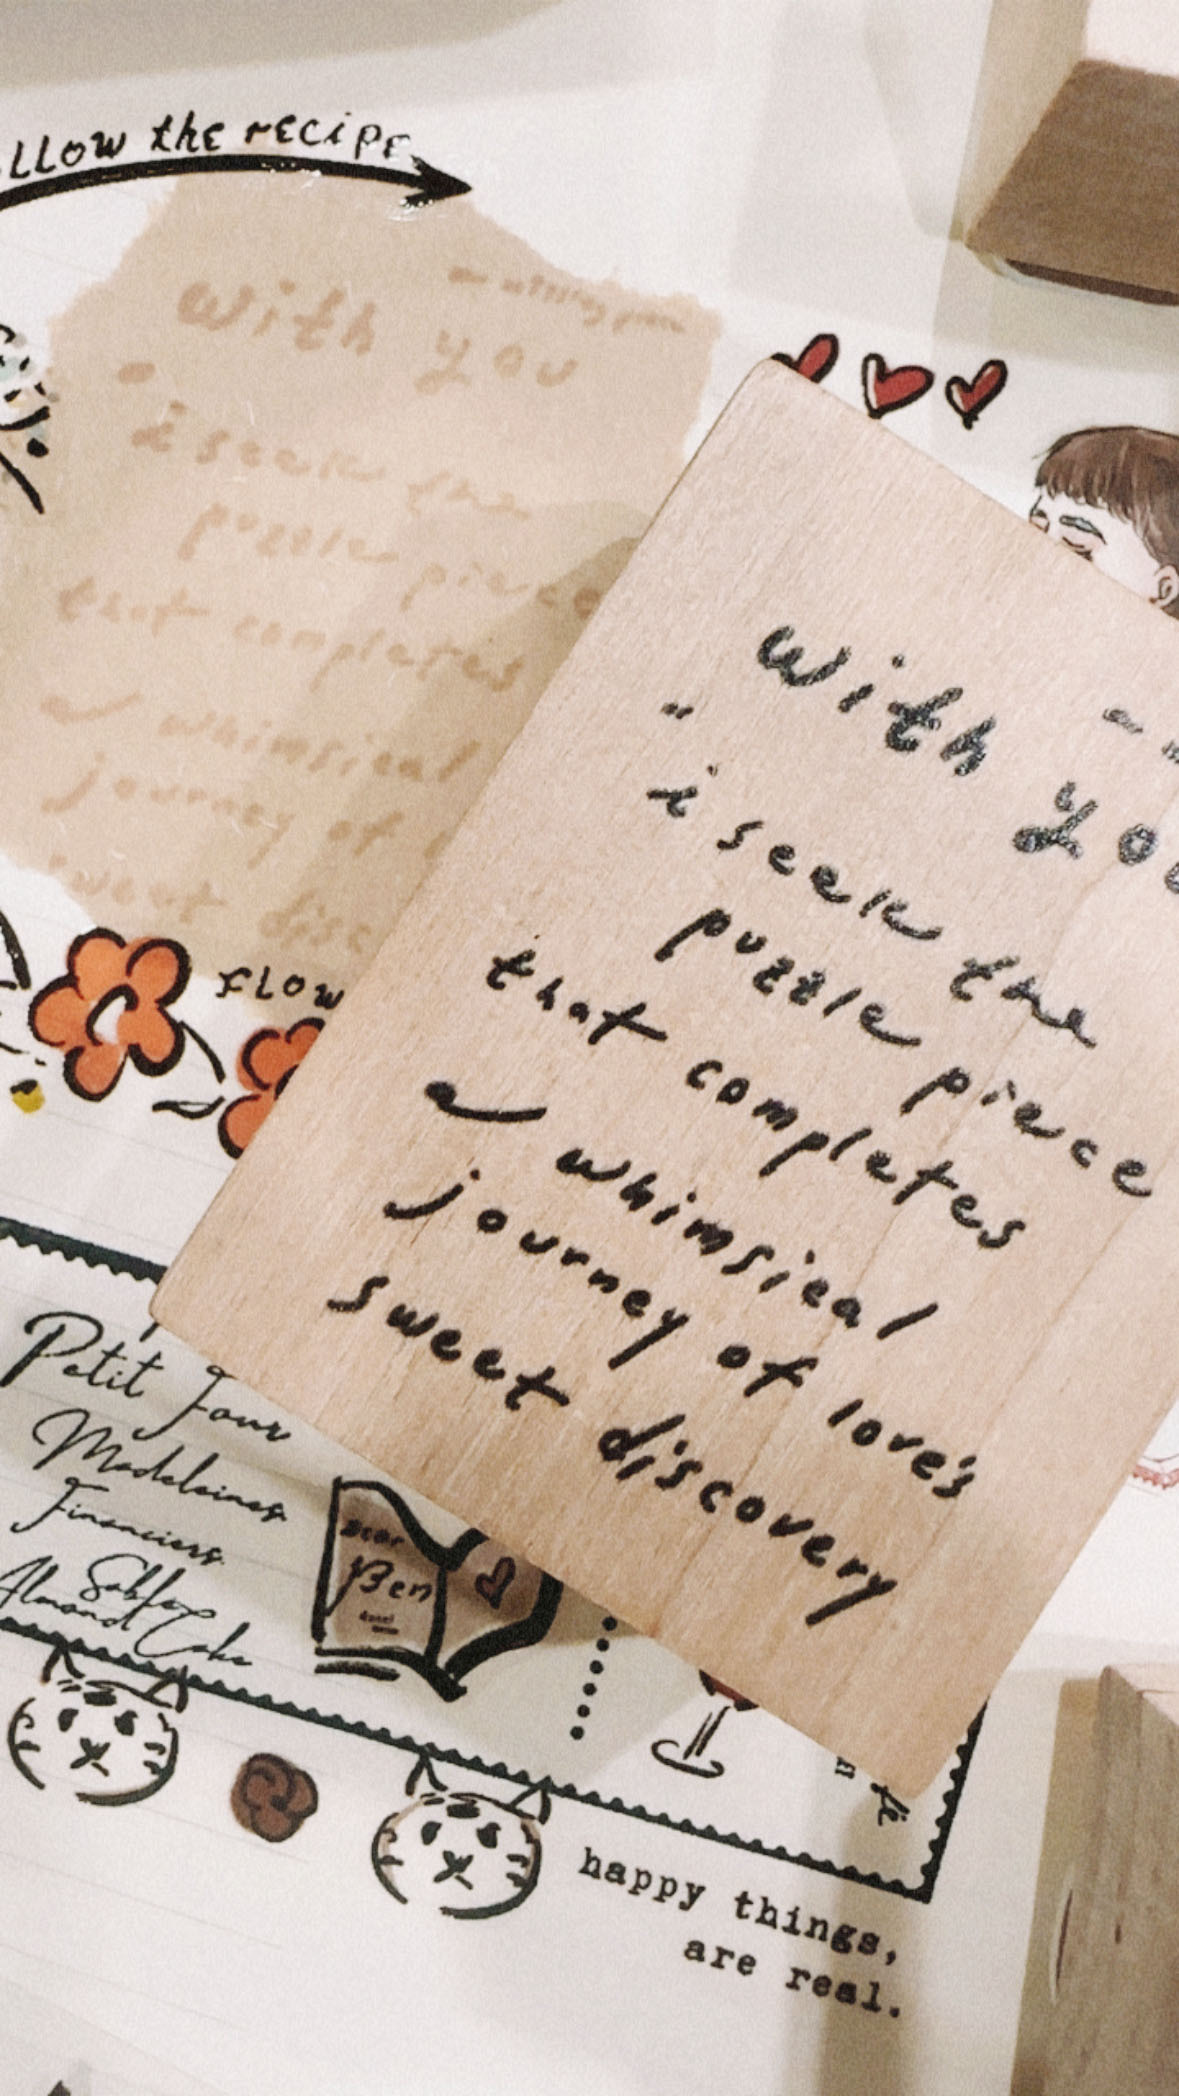 LLOW the recipe
with you
i seek the
puzzle piece
that completes
a whimsical
journey of
sweet disc
FLOW
with you
"i seek the
puzzle piece
that completes
a whimsical
journey of love's
sweet discovery
Petit Four
Madeleines
Financiers
Almond Cake
Dear
Ben
happy things,
are real.